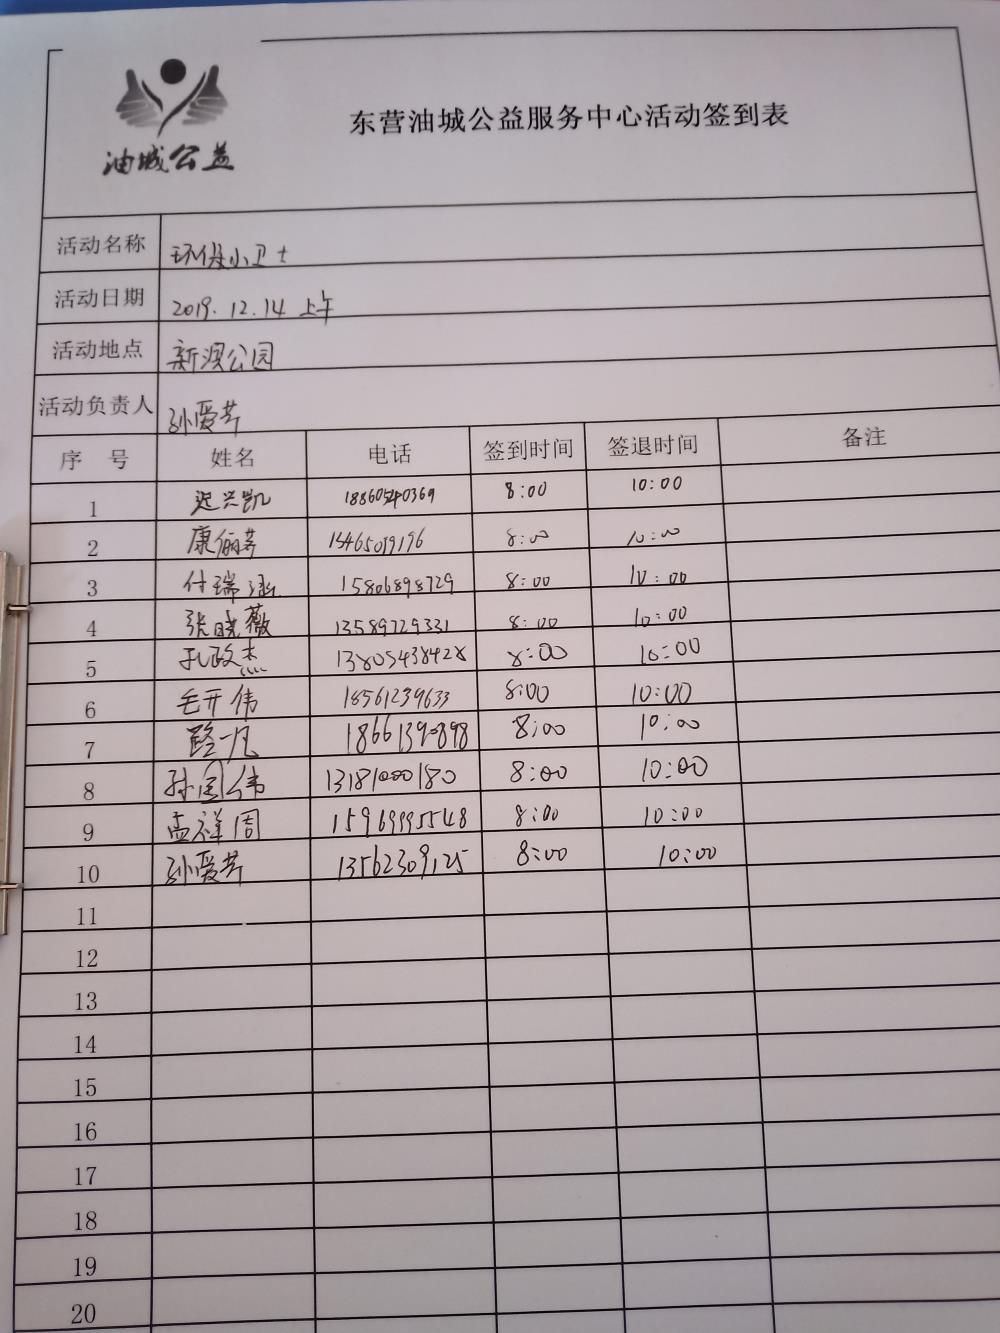 油城公益
东营油城公益服务中心活动签到表
活动名称 环保小卫士
活动日期 2019.12.14 上午
活动地点 新淏公园
活动负责人 孙爱芹
序 号 姓名 电话 签到时间 签退时间 备注
1 迟兴凯 8:00 10:00
2 康俪芳 15465019196 8:00 10:00
3 付瑞涵 15806898729 8:00 10:00
4 张晓薇 13589729331 8:00 10:00
5 孔政杰 13805438428 8:00 10:00
6 毛开伟 18561239633 8:00 10:00
7 路一凡 18661390898 8:00 10:00
8 孙国伟 13181000180 8:00 10:00
9 孟祥周 15969995548 8:00 10:00
10 孙爱芹 13562309125 8:00 10:00
11
12
13
14
15
16
17
18
19
20